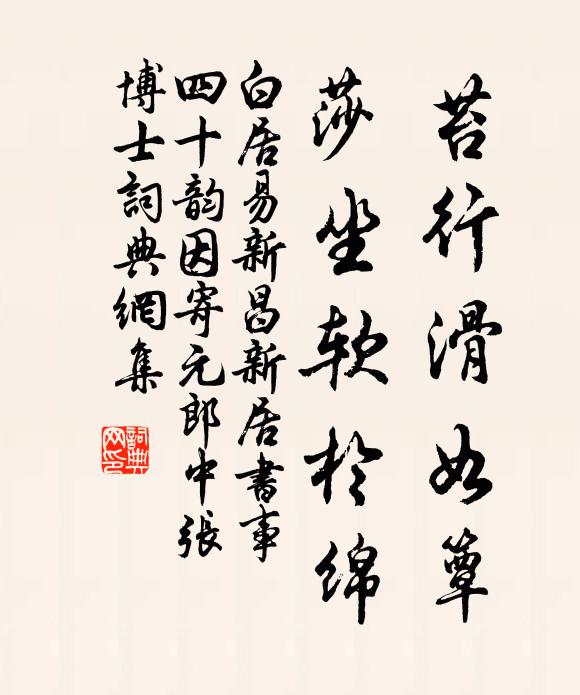 苔行滑如簟
莎坐软於绵
白居易新昌新居書事
四十韵因寄元郎中張
博士詞典網集
詞典
网印